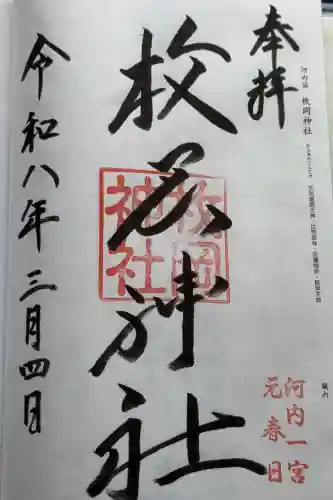 奉拝
河内国 枚岡神社
枚岡神社
枚岡神社
河内一宮
元春日
令和八年三月四日